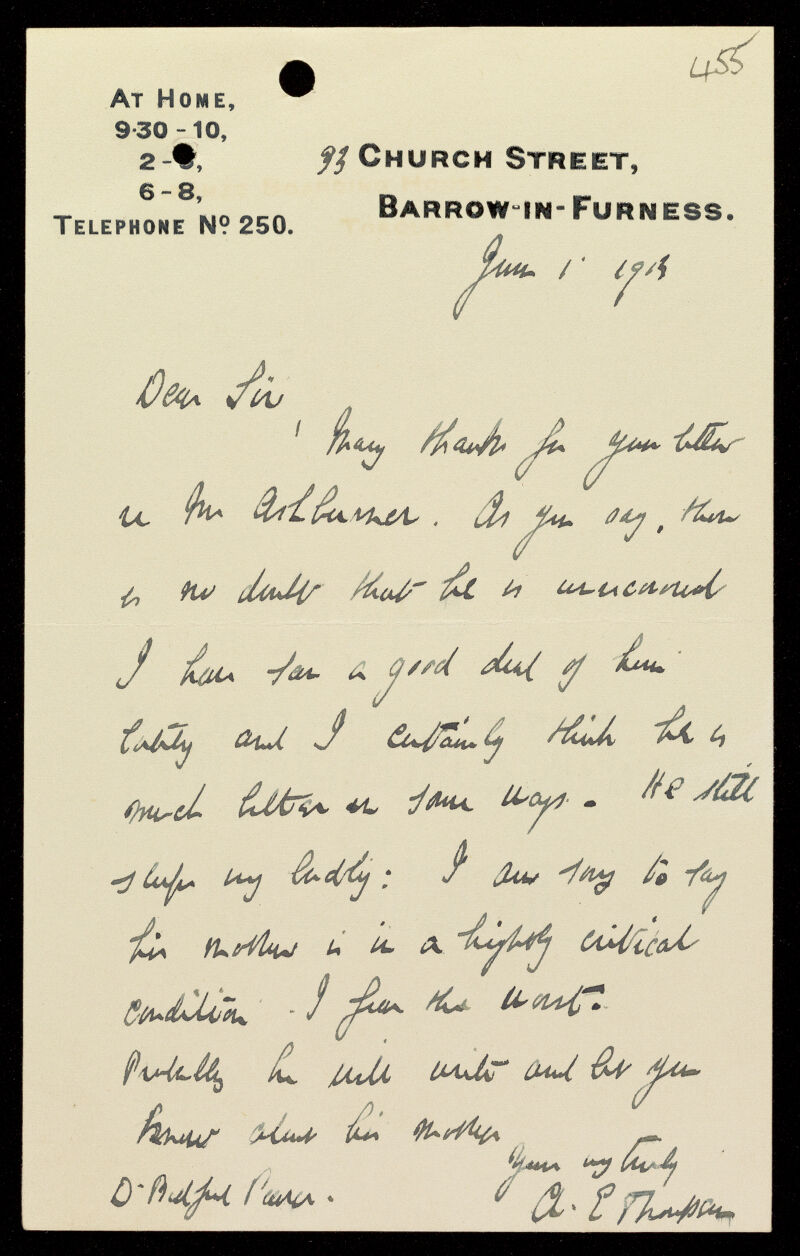 455
AT HOME,
9·30 - 10,
2 - ,
6 - 8,
TELEPHONE Nº 250.
93 CHURCH STREET,
BARROW-IN-FURNESS.
June 1 1913
Dear Sir,
Many thanks for your letter
re Mr Ashburner. As you say, there
is no doubt that he is unrecovered
I have seen a good deal of him
lately and I certainly think he is
much better in some ways. He still
sleeps very badly: I am sorry to say
his mother is in a highly critical
condition. I fear the worst.
Probably he will write and let you
know about his mother
Yours very truly
A. E Thompson
Dr Bedford Pierce.